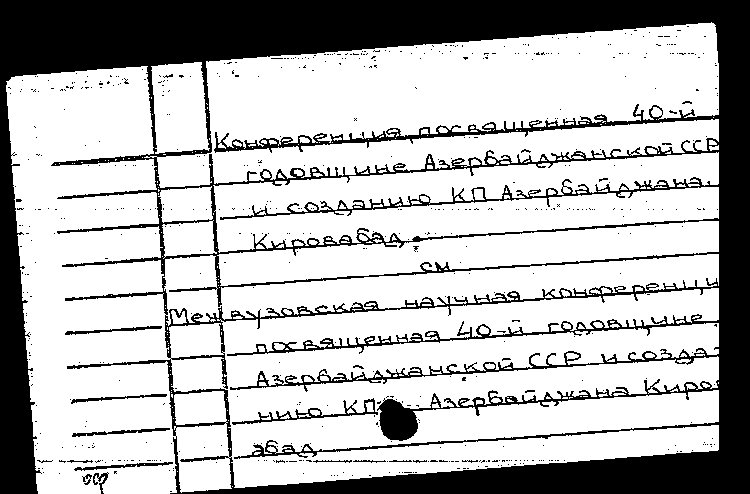 Конференция, посвященная 40-й
годовщине Азербайджанской ССР
и созданию КП Азербайджана.
Кировабад.
см
Межвузовская научная конференци
посвященная 40-й годовщине
Азербайджанской ССР и созда-
нию КП Азербайджана Киров
абад